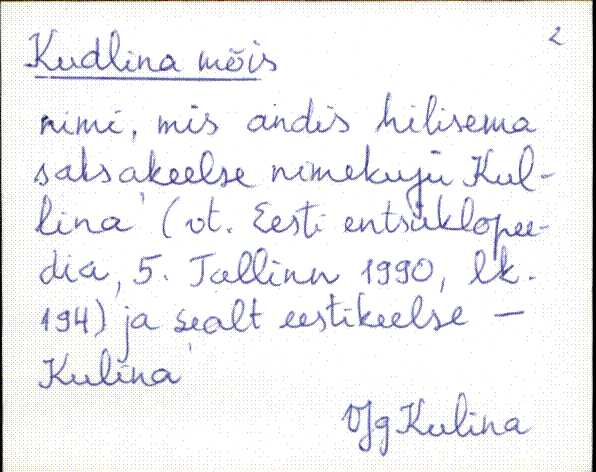 2
Kudlina mõis
nimi, mis andis hilisema
saksakeelse nimekuju Kul-
lina (vt. Eesti entsüklopee-
dia, 5. Tallinn 1990, lk.
194) ja sealt eestikeelse —
Kulina
VJg Kulina